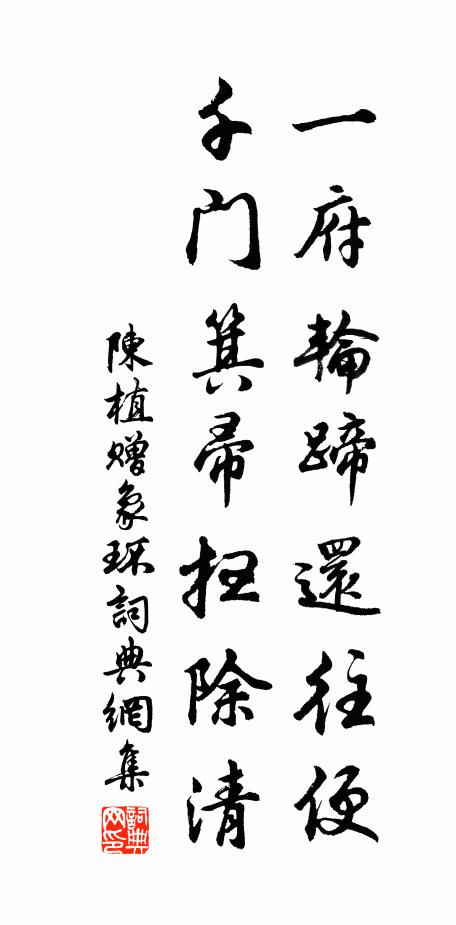 一府輪蹄還往便
千门箕帚扫除清
陳植赠象环詞典網集
詞典网印